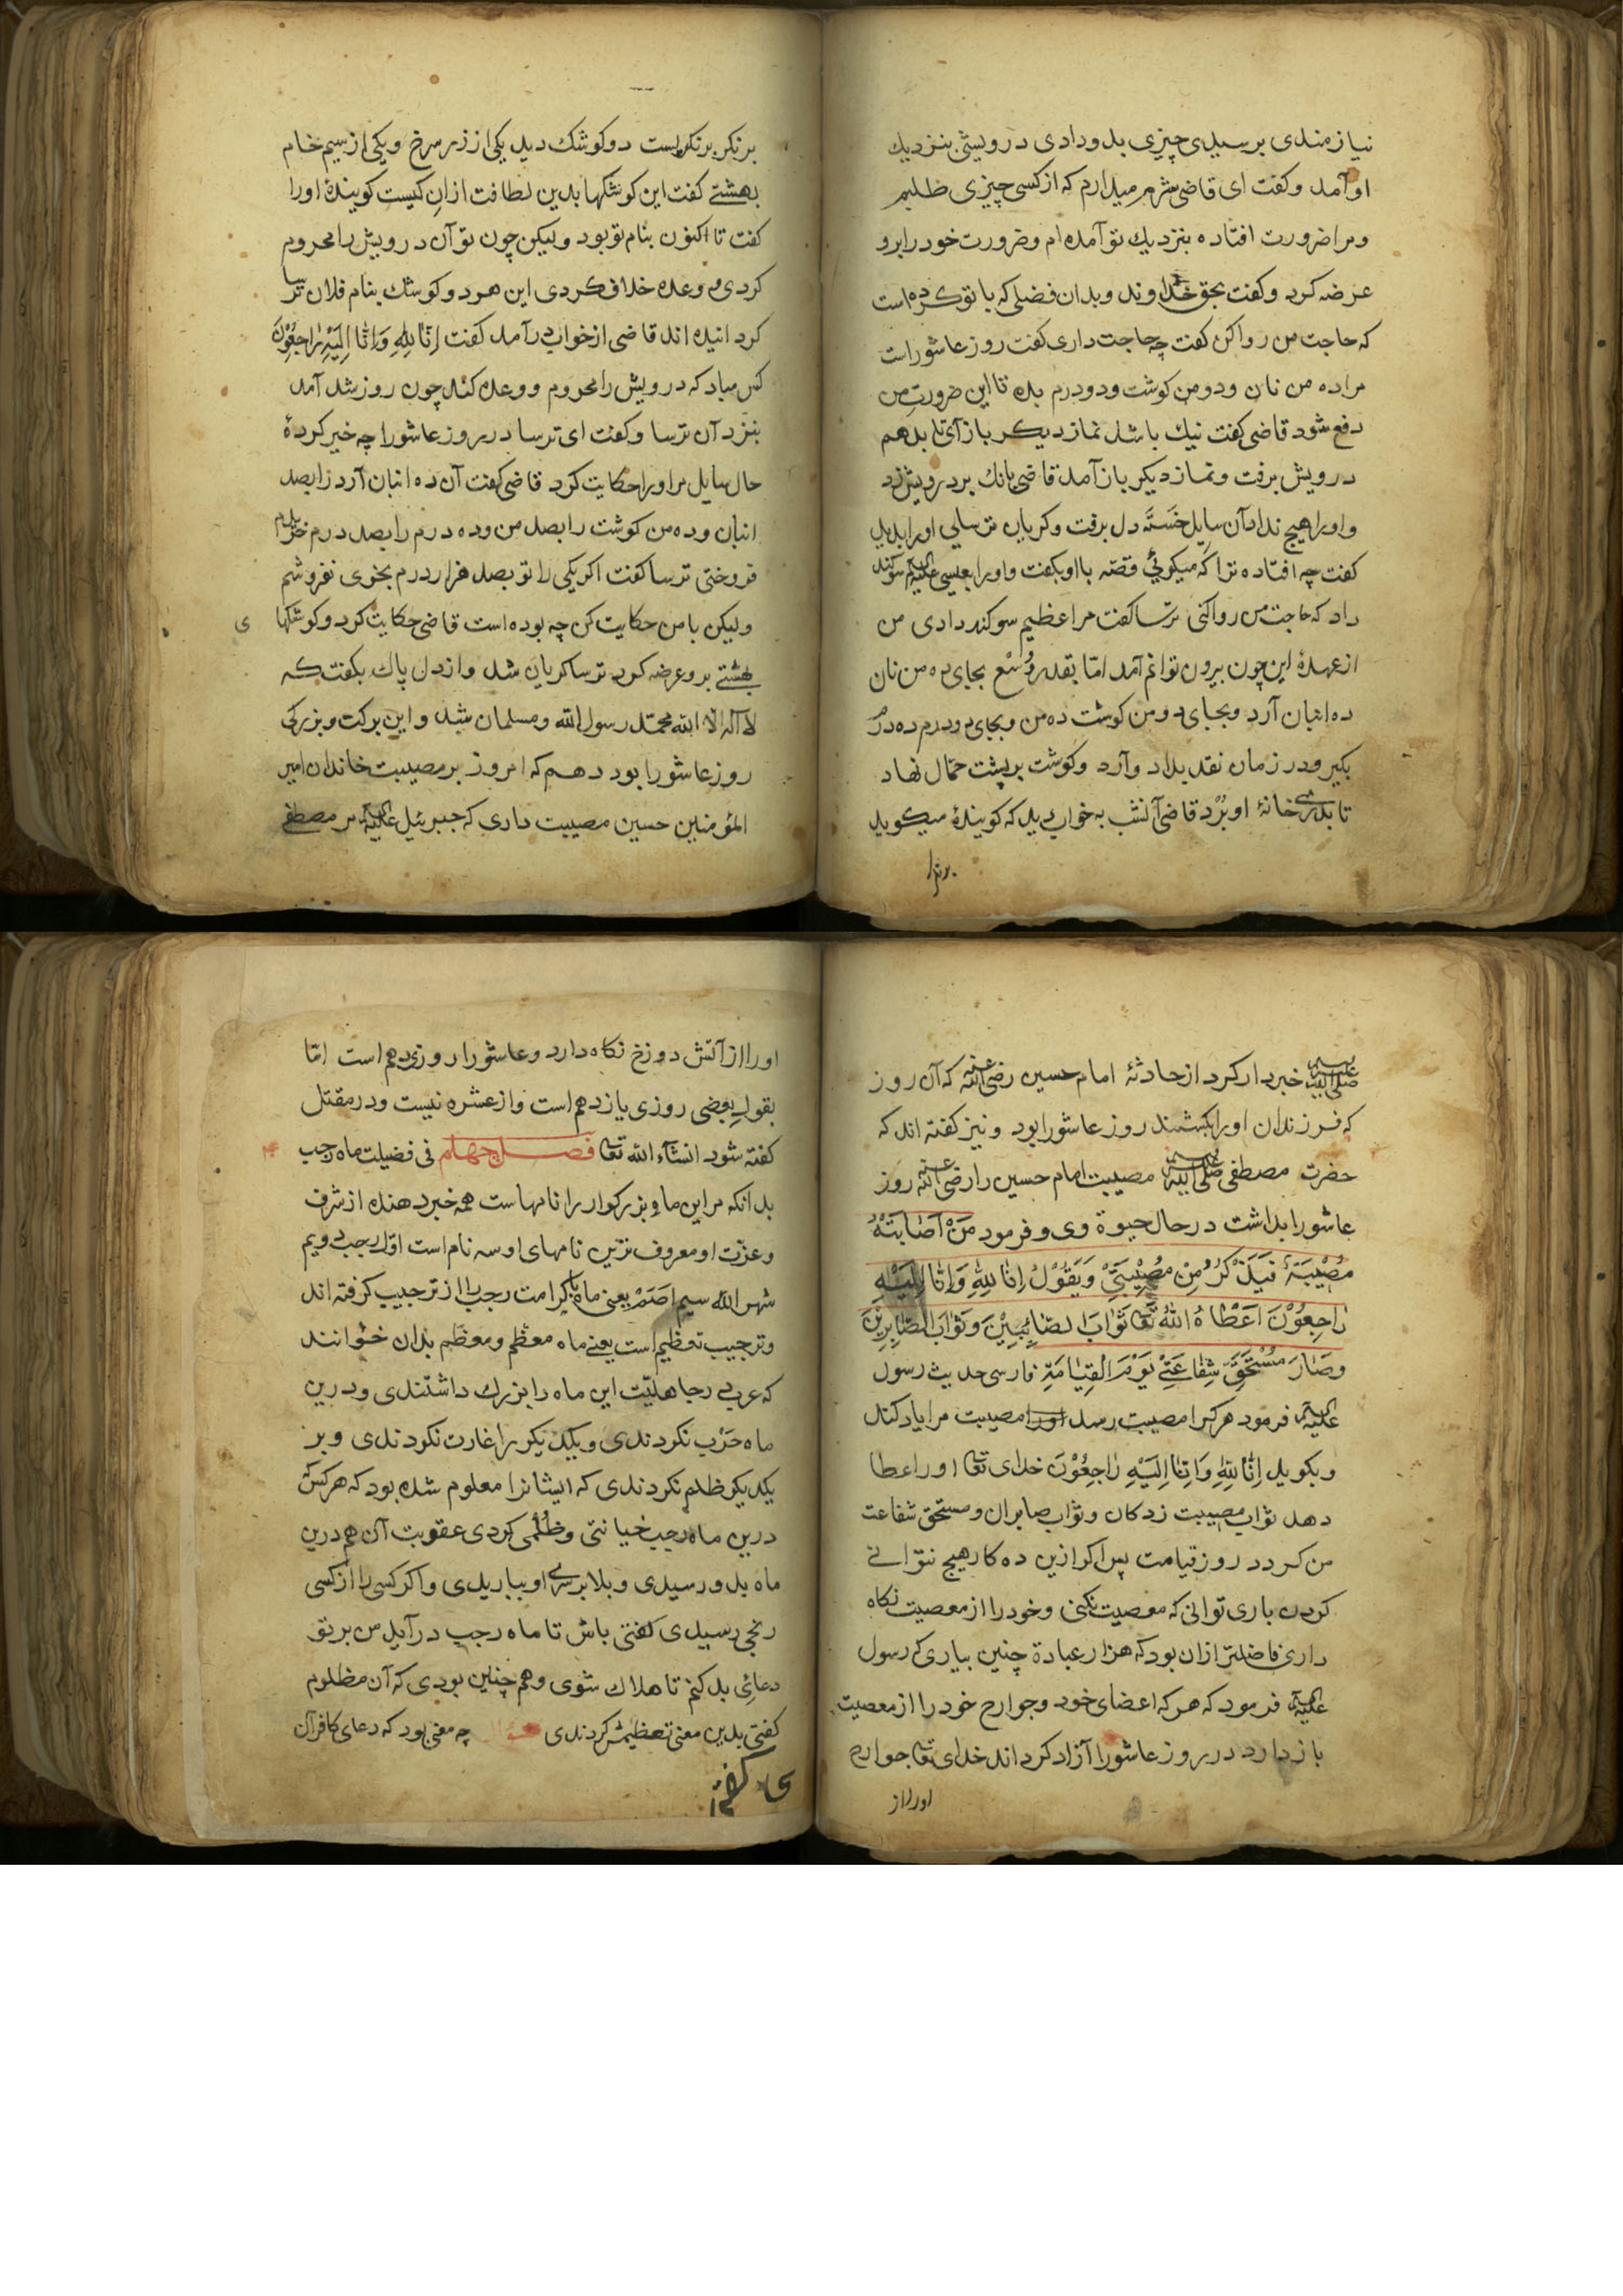 نیازمندی برسیدی چیزی بدو دادی درویشی بنزدیك
او آمد و کفت ای قاضی شرم میدارم که از کسی چیزی طلبم
و مرا ضرورت افتاده بنزدیك تو آمده ام و ضرورت خود را برو
عرضه کرد و کفت بحق خداوند و بدان فضلی که با تو کرده است
که حاجت من روا کن کفت چه حاجت داری کفت روز عاشوراست
مرا ده من نان و دو من کوشت و دو درم بده تا این ضرورت من
دفع شود قاضی کفت نیك باشد نماز دیکر باز آی تا بدهم
درویش برفت و نماز دیکر باز آمد قاضی بانك بر درویش زد
و اورا هیچ نداد آن سایل خَسته دل برفت و کریان ترسایی اورا بدید
کفت چه افتاده ترا که میکویی قصّه با او بکفت و اورا بعیسی علیه السلام سوکند
داد که حاجت من روا کنی ترسا کفت مرا عظیم سوکند دادی من
از عهدهٔ این چون بیرون توانم آمد امّا بقدر وُسْع بجای ده من نان
ده انبان آرد و بجای دو من کوشت ده من و بجای دو درم ده درم
بکیر و در زمان نقد بداد و آرد و کوشت بر پشت حمّال نهاد
تا بدر خانهٔ او بُرْد قاضی آنشب به خواب دید که کویندهٔ میکوید
برتر
بر نکر برنکریست دو کوشك دید یکی از زر سرخ و یکی از سیم خام
بهشتے کفت این کوشکها بدین لطافت ازان کیست کویندهٔ اورا
کفت تا اکنون بنام تو بود و لیکن چون تو آن درویش را محروم
کردی و وعده خلاف کردی این هر دو کوشك بنام فلان ترسا
کردانیده اند قاضی از خواب درآمد کفت اِنّا لِلّهِ وَاِنّا اِلَیْهِ رٰاجِعُوْنَ
کس مباد که درویش را محروم و وعده کند چون روز شد آمد
بنزد آن ترسا و کفت ای ترسا در روز عاشورا چه خیر کردهٔ
حال سایل مر اورا حکایت کرد قاضی کفت آن ده انبان آرد را بصد
انبان و ده من کوشت را بصد من و ده درم را بصد درم
فروختی ترسا کفت اکر یکی را تو بصد هزار درم بخری نفروشم
ولیکن با من حکایت کن چه بوده است قاضی حکایت کرد و کوشکها
ی
بهشتے برو عرضه کرد ترسا کریان شد و از دل پاك بکفت که
لا اله الا الله محمّد رسول الله و مسلمان شد و این برکت و بزرکی
روز عاشورا بود دهم که امروز بر مصیبت خاندان امیر
المؤمنین حسین مصیبت داری که جبرئیل علیه السلام مر مصطفے
صلّی الله علیه وسلم خبردار کرد از حادثهٔ امام حسین رضی الله عنه که آن روز
که فرزندان اورا بکشند روز عاشورا بود و نیز کفته اند که
حضرت مصطفی صلّی الله علیه وسلم مصیبت امام حسین را رضی الله عنه روز
عاشورا بداشت در حال حیوة وی و فرمود مَنْ اَصٰابَتْهُ
مُصْیْبَةٌ فَیَذْکُرُ مِنْ مُصِیْبَتِیْ وَیَقُوْلُ اِنّا لِلّهِ وَاِنّا اِلَیْهِ
رٰاجِعُوْنَ اَعْطٰاهُ اللّٰهُ تَعَا ثَوٰابَ المصائبین وَثَوٰابَ الصّٰابِرِیْنَ
وصٰارَ مُسْتَحَقِّ شِفٰاعَتِیْ یَوْمَ الْقِیٰامَةِ فارسی حدیث رسول
علیه السلام فرمود هر کرا مصیبت رسد اورا مصیبت مرا یاد کند
و بکوید اِنّا لِلّهِ وَاِنّا اِلَیْهِ رٰاجِعُوْنَ خدای تعا اورا عطا
دهد ثواب مصیبت زدکان و ثواب صابران و مستحق شفاعت
من کردد روز قیامت پس اکر ازین ده کار هیچ نتوانے
کردن باری توانی که معصیت نکنی و خود را از معصیت نکاه
داری فاضلتر ازان بود که هزار عبادة چنین بیاری که رسول
علیه السلام فرمود که هر که اعضای خود و جوارح خود را از معصیت
باز دارد در روز عاشورا آزاد کرداند خدای تعا جوارح
اورا از
اورا از آتش دوزخ نکاه دارد و عاشورا روز دهم است امّا
بقول بعضی روزی یازدهم است و از عشره نیست و در مقتل
کفته شود انشآء الله تعا فصل چهارم فی فضیلت ماه رجب
بدانکه مر این ماه بزرکوار را نامهاست همه خبر دهنده از شرف
و عزّت او معروف ترین نامهای او سه نام است اوّل رجب دویم
شهر الله سیم اصَمّ یعنی ماه با کرامت رجب را از ترجیب کرفته اند
و ترجیب تعظیم است یعنے ماه معظم و معظم بدان خوانند
که عرب در جاهلیّت این ماه را بزرك داشتندی و درین
ماه حَرْب نکردندی و یکدیکر را غارت نکردندی و بر
یکدیکر ظلم نکردندی که ایشانرا معلوم شده بود که هر کس که
درین ماه رجب خیانتی و ظُلمی کردی عقوبت آن هم درین
ماه بدو رسیدی و بلا بر سر او بباریدی و اکر کسی را از کسی
رنجی رسیدی کفتی باش تا ماه رجب درآید من بر تو
دعائی بد کنم تا هلاك شوی و هم چنین بودی که آن مظلوم
کفتی بدین معنی تعظیمش کردندی چه معنی بود که دعای کافران